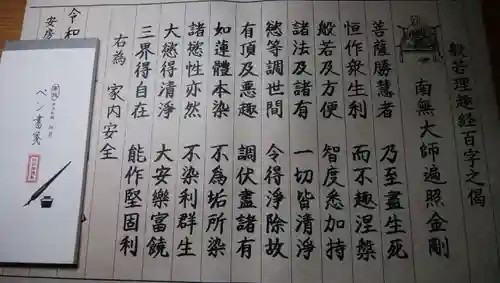 般若理趣経百字之偈
南無大師遍照金剛
菩薩勝慧者 乃至盡生死
恒作衆生利 而不趣涅槃
般若及方便 智度悉加持
諸法及諸有 一切皆清淨
慾等調世間 令得淨除故
有頂及悪趣 調伏盡諸有
如蓮體本染 不為垢所染
諸慾性亦然 不染利群生
大慾得清淨 大安樂富饒
三界得自在 能作堅固利
右為 家内安全
令和
安房
ペン書箋